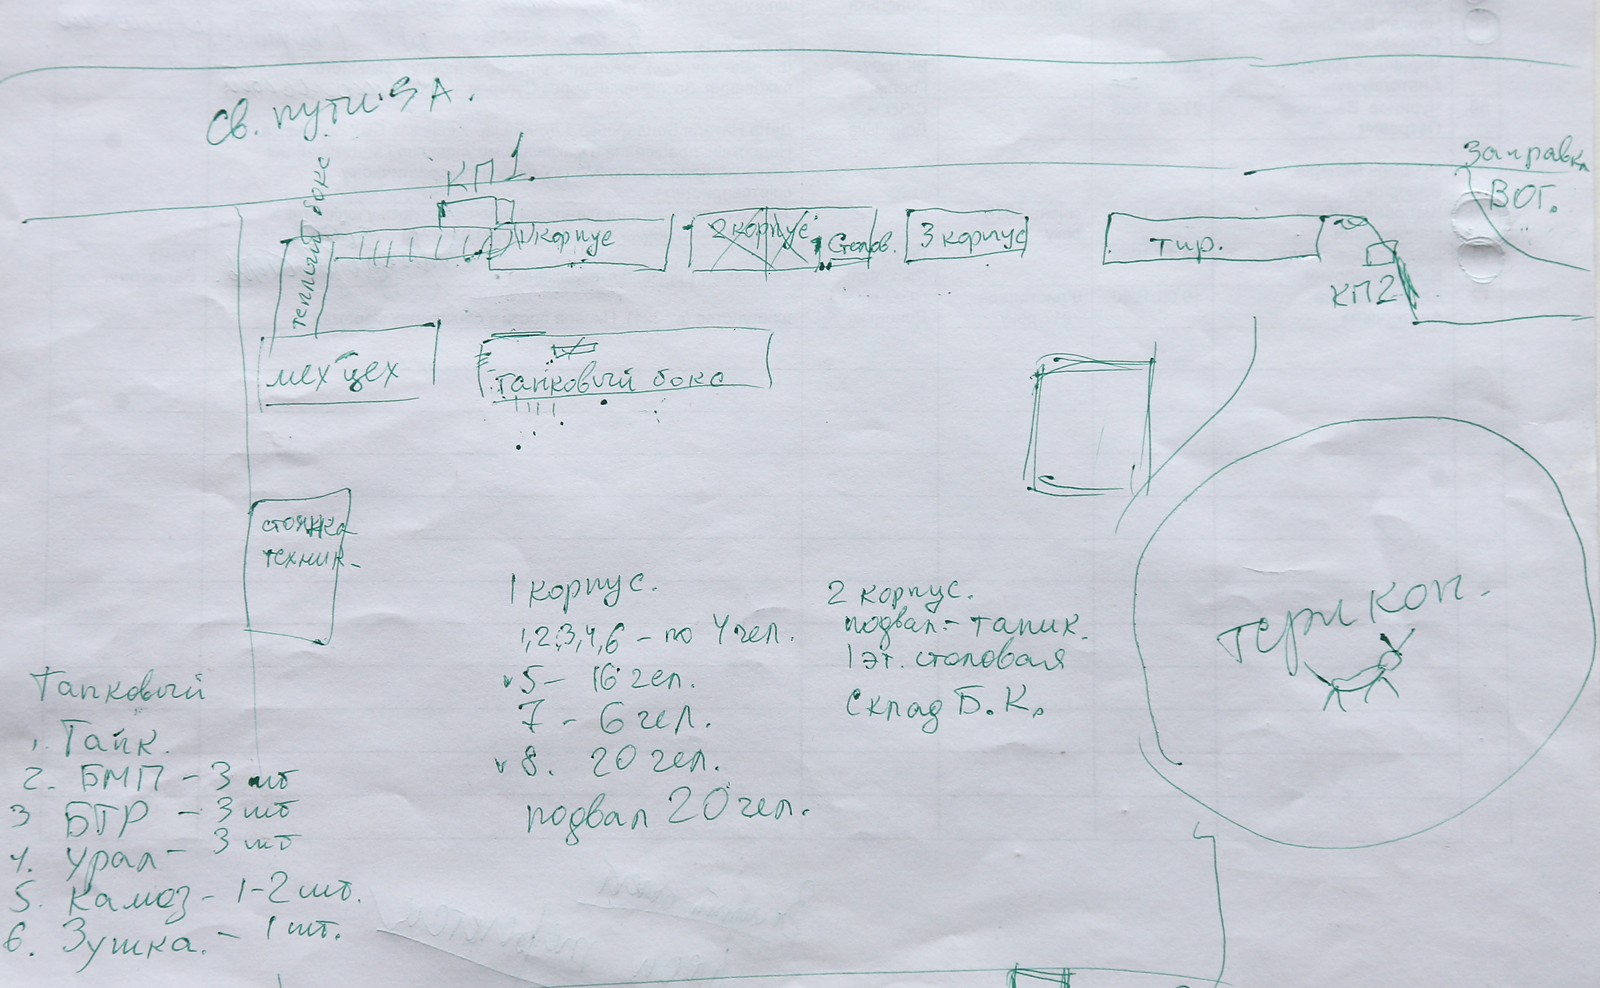 Св. пути 3 А.
КП 1.
Заправка
ВОГ.
теплый бокс
1 корпус
2 корпус
Столов.
3 корпус
тир.
КП2
мех цех
танковый бокс
стоянка
техник
террикон.
1 корпус.
1,2,3,4,6 – по 4 чел.
v 5 – 16 чел.
7 – 6 чел.
v 8. 20 чел.
подвал 20 чел.
2 корпус.
подвал – тапик.
1 эт. столовая
склад Б.К.
Танковый
1. Танк.
2. БМП – 3 шт
3 БТР – 3 шт
4. Урал – 3 шт
5. Камаз – 1-2 шт.
6. Зушка. – 1 шт.